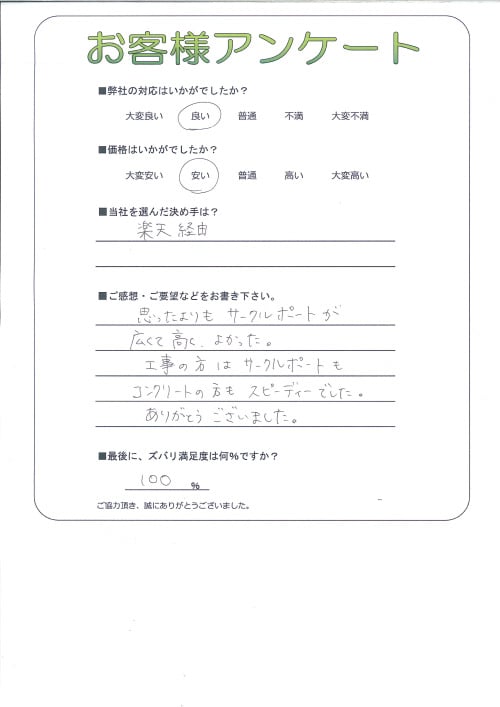 お客様アンケート
■弊社の対応はいかがでしたか?
大変良い 良い 普通 不満 大変不満
■価格はいかがでしたか?
大変安い 安い 普通 高い 大変高い
■当社を選んだ決め手は?
楽天経由
■ご感想・ご要望などをお書き下さい。
思ったよりも サークルポートが
広くて高く、よかった。
工事の方は サークルポートも
コンクリートの方も スピーディーでした。
ありがとうございました。
■最後に、ズバリ満足度は何%ですか?
100 %
ご協力頂き、誠にありがとうございました。